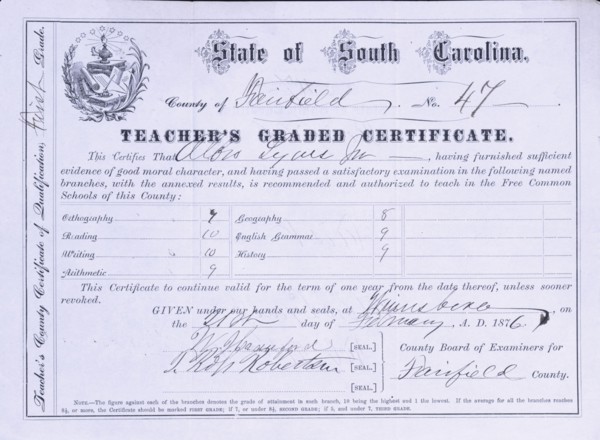 State of South Carolina.
County of Fairfield No. 47
TEACHER'S GRADED CERTIFICATE.
This Certifies That Lyons Jr, having furnished sufficient
evidence of good moral character, and having passed a satisfactory examination in the following named
branches, with the annexed results, is recommended and authorized to teach in the Free Common
Schools of this County:
Orthography 7 Geography 8
Reading 10 English Grammar 9
Writing 10 History 9
Arithmetic 9
This Certificate to continue valid for the term of one year from the date thereof, unless sooner
revoked.
GIVEN under our hands and seals, at Winnsboro, on
the 21st day of February, A. D. 1876.
[SEAL.] County Board of Examiners for
Robertson [SEAL.] Fairfield County.
[SEAL.]
NOTE.—The figure against each of the branches denotes the grade of attainment in each branch, 10 being the highest and 1 the lowest. If the average for all the branches reaches
8½, or more, the Certificate should be marked FIRST GRADE; if 7, or under 8½, SECOND GRADE; if 5, and under 7, THIRD GRADE.
Teacher's County Certificate of Qualification, First Grade.